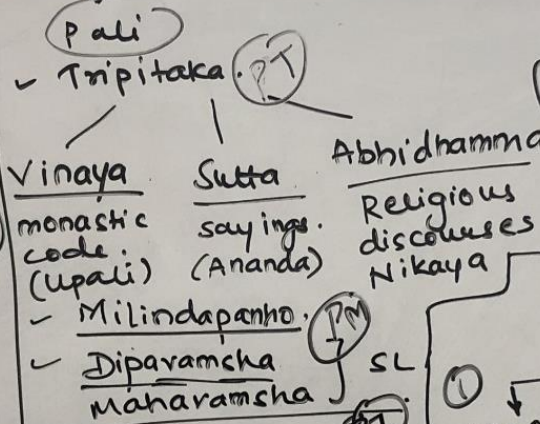 Pali
Tripitaka. PT
Vinaya
monastic
code.
(Upali)
Sutta
sayings.
(Ananda)
Abhidhamma
Religious
discourses
Nikaya
Milindapanho.
Dipavamsha
Mahavamsha
SL
1